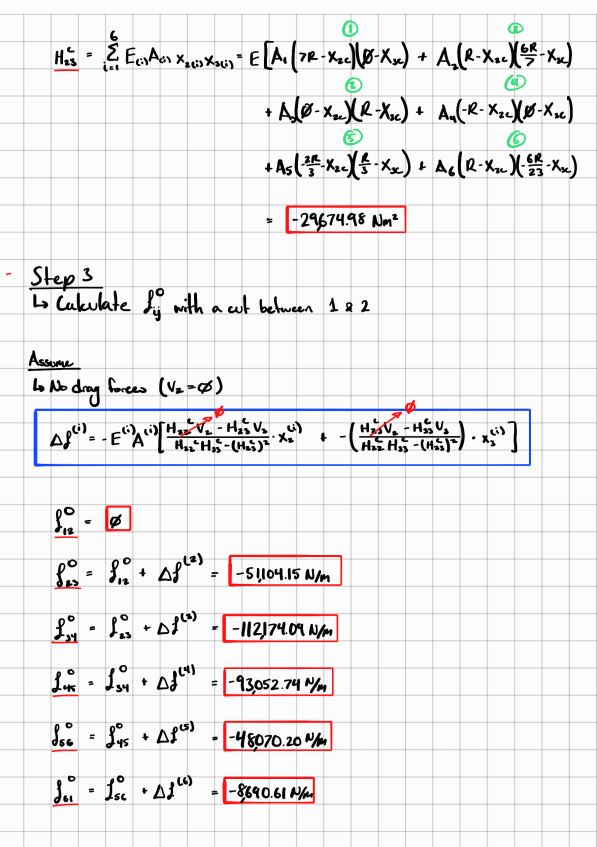 ① ②
H₂₃ᶜ = Σᵢ₌₁⁶ E₍ᵢ₎A₍ᵢ₎ x₂₍ᵢ₎x₃₍ᵢ₎ = E[A₁(7R-X₂c)(∅-X₃c) + A₂(R-X₂c)(6R/7-X₃c)
③ ④
+ A₃(∅-X₂c)(R-X₃c) + A₄(-R-X₂c)(∅-X₃c)
⑤ ⑥
+ A₅(-2R/3-X₂c)(R/3-X₃c) + A₆(R-X₂c)(-6R/23-X₃c)
= -29,674.98 Nm²
- Step 3
↳ Calculate fᵢⱼ⁰ with a cut between 1 & 2
Assume
↳ No drag forces (V₂=∅)
∅ ∅
Δf⁽ⁱ⁾ = -E⁽ⁱ⁾A⁽ⁱ⁾[(H₂₂ᶜV₂ - H₂₃ᶜV₃)/(H₂₂ᶜH₃₃ᶜ-(H₂₃ᶜ)²) · x₂⁽ⁱ⁾ + -((H₂₃ᶜV₂ - H₃₃ᶜV₃)/(H₂₂ᶜH₃₃ᶜ-(H₂₃ᶜ)²)) · x₃⁽ⁱ⁾]
f₁₂⁰ = ∅
f₂₃⁰ = f₁₂⁰ + Δf⁽²⁾ = -51,104.15 N/m
f₃₄⁰ = f₂₃⁰ + Δf⁽³⁾ = -112,174.09 N/m
f₄₅⁰ = f₃₄⁰ + Δf⁽⁴⁾ = -93,052.74 N/m
f₅₆⁰ = f₄₅⁰ + Δf⁽⁵⁾ = -48,070.20 N/m
f₆₁⁰ = f₅₆⁰ + Δf⁽⁶⁾ = -8,690.61 N/m